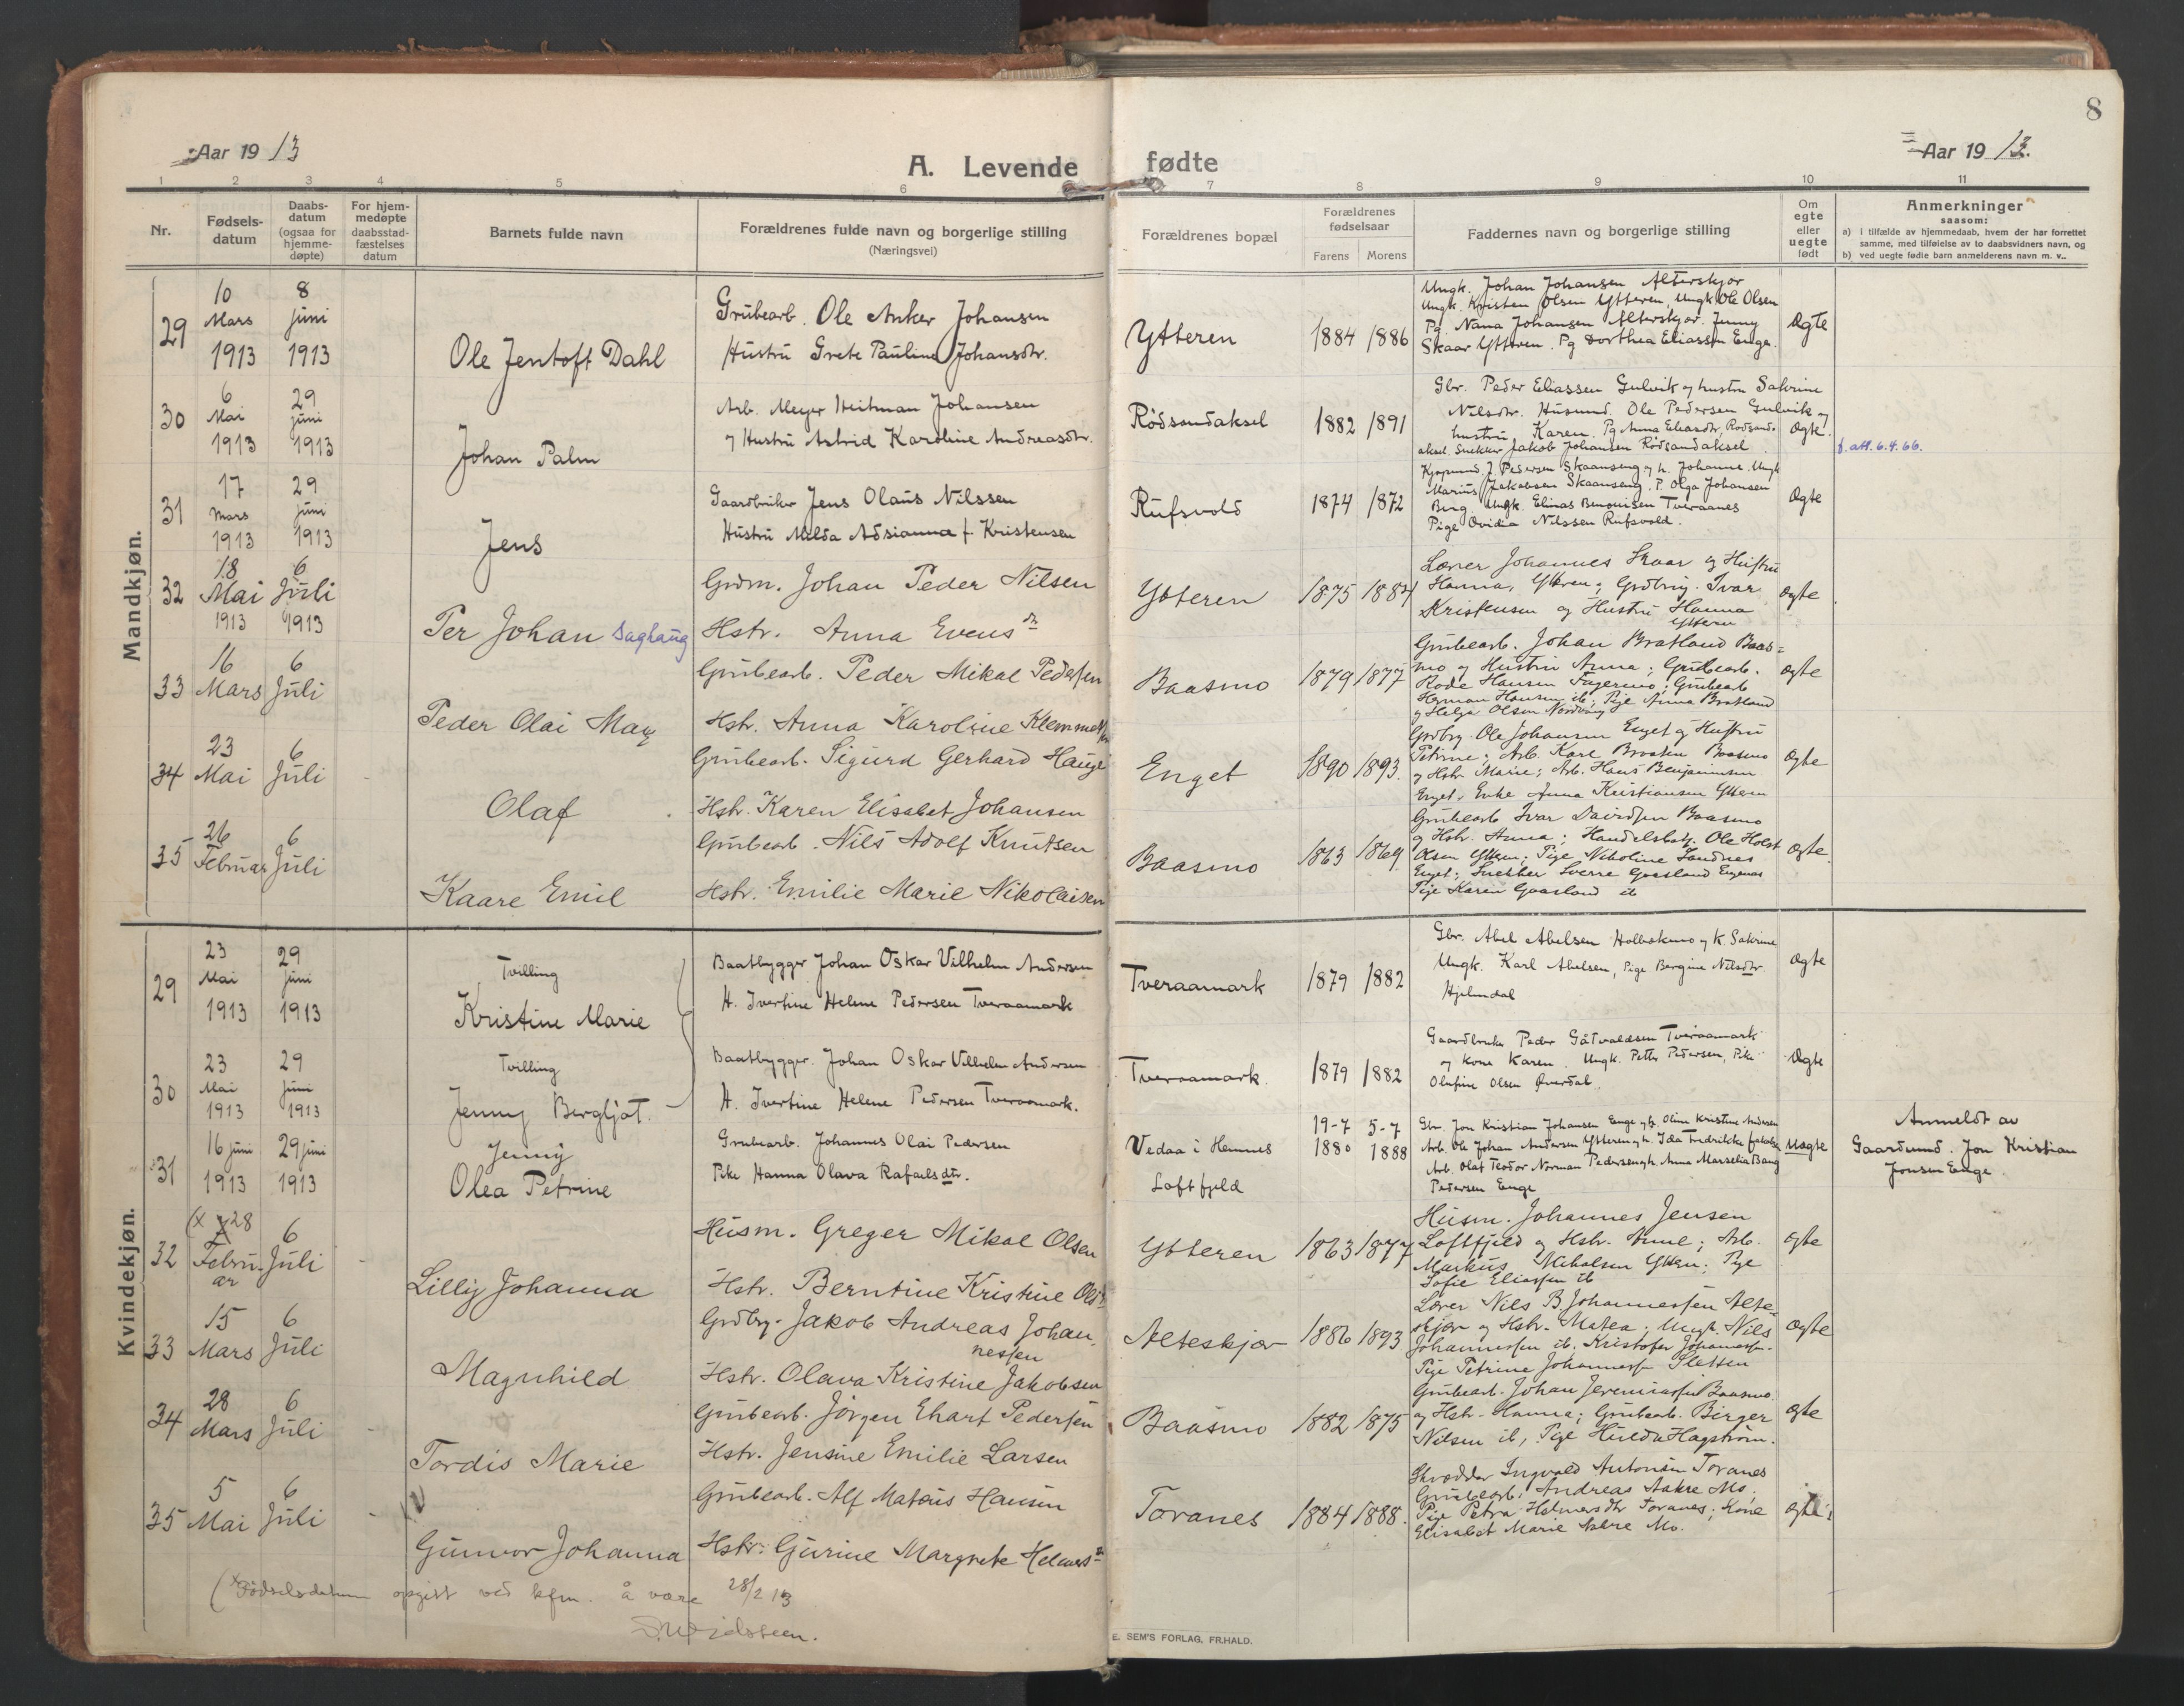 Aar 1913
A. Levende fødte
Aar 1913.
8
1 2 3 4 5 6 7 8 9 10 11
Nr.
Fødsels-
datum
Daabs-
datum
(ogsaa for
hjemme-
døpte)
For hjem-
medøpte
daabsstad-
fæstelses
datum
Barnets fulde navn
Forældrenes fulde navn og borgerlige stilling
(Næringsvei)
Forældrenes bopæl
Forældrenes
fødselsaar
Farens Morens
Faddernes navn og borgerlige stilling
Om
egte
eller
uegte
født
Anmerkninger
saasom:
a) i tilfælde av hjemmedaab, hvem der har forrettet
samme, med tilføielse av to daabsvidners navn, og
b) ved uegte fødte barn anmelderens navn m. v..
Mandkjøn.
29
10 Mars 1913
8 juni 1913
Ole Jentoft Dahl
Grubearb. Ole Anker Johansen
Hustru Grete Pauline Johansdtr.
Ytteren
1884 1886
Ungk. Johan Johansen Alterskjør
Ungk. Kristen Olsen Ytteren, Ungk Ole Olsen
Pg. Nana Johansen Alterskjør. Jenny
Skaar Ytteren. Pg Dorthea Eliassen Enge.
Ægte
30
6 Mai 1913
29 juni 1913
Johan Palm
Arb. Meyer Heitman Johansen
og Hustru Astrid Karoline Andreasdtr.
Rødsandaksel
1882 1891
Gbr. Peder Eliassen Gulvik og hustru Sakrine
Nilsdtr. Husmd. Ole Pedersen Gulvik og
hustru Karen. Pg Anna Eliasdtr, Rødsand-
aksel. Snekker Jakob Johansen Rødsandaksel
Ægte.
f. att. 6.4.66.
31
17 Mars 1913
29 juni 1913
Jens
Gaardbruker Jens Olaus Nilssen
Hustru Milda Adsianna f. Kristensen
Rufsvold
1874 1872
Kjøpmd. J. Pedersen Skaanseng og h. Johanne. Ungk
Marius Jakobsen Skaanseng. P. Olga Johansen
Berg. Ungk. Elinas Benonisen Tveraanes
Pige Ovidia Nilssen Rufsvold.
Ægte
32
18 Mai 1913
6 Juli 1913
Per Johan Saghaug
Grdm. Johan Peder Nilsen
Hstr. Anna Evensdr
Ytteren
1875 1884
Lærer Johannes Skaar og Hustru
Hanna, Ytteren; Grdbrg. Ivar
Kristensen og Hustru Hanna
Ytteren
Ægte
33
16 Mars
6 Juli
Peder Olai Mag
Grubearb. Peder Mikal Pedersen
Hstr. Anna Karoline Klemmetsen
Baasmo
1879 1877
Grubearb. Johan Bratland Baas-
mo og Hustru Anna; Grubearb.
Rode Hansen Fagermo; Grubearb
Herman Hansen ib; Pige Anna Bratland
og Helga Olsen Nordvåg
Ægte
34
23 Mai
6 Juli
Olaf
Grubearb. Sigurd Gerhard Hauge
Hstr. Karen Elisabet Johansen
Enget
1890 1893.
Grdbrg. Ole Johansen Enget og Hustru
Petrine; Arb. Karl Braaten Baasmo
og Hstr. Marie; Arb. Hans Benjaminsen
Enget, Enke Anna Kristiansen Ytteren
Ægte
35
26 Februar
6 Juli
Kaare Emil
Grubearb. Nils Adolf Knutsen
Hstr. Emilie Marie Nikolaisen
Baasmo
1863 1869
Grubearb Ivar Davidsen Baasmo
og Hstr. Anna; Handelsbetj. Ole Holst
Olsen Ytteren; Pige Nikoline Sandnes
Enget; Snekker Sverre Gaasland
Pige Karen Gaasland ib
Ægte.
Kvindekjøn.
29
23 Mai 1913
29 juni 1913
Tvilling
Kristine Marie
Baatbygger Johan Oskar Vilhelm Andersen
H. Ivertine Helene Pedersen Tveraamark
Tveraamark
1879 1882
Gbr. Abel Abelsen Holbekmo og K. Sakrine
Ungk. Karl Abelsen, Pige Bergine Nilsdtr.
Hjelmdal
Ægte
30
23 Mai 1913
29 Juni 1913
Tvilling
Jenny Bergljot.
Baatbygger. Johan Oskar Vilhelm Andersen
H. Ivertine Helene Pedersen Tveraamark.
Tveraamark
1879 1882
Gaardbruker Peder Gåtvaldsen Tveraamark
og Kone Karen. Ungk. Petter Pedersen, Pike
Olufine Olsen Øverdal.
Ægte
31
16 juni 1913
29 juni 1913
Jenny
Olea Petrine
Grubearb. Johannes Olai Pedersen
Pike Hanna Olava Rafaelsdtr.
Vedaa i Hemnes
Loftfjeld
19-7 1880 5-7 1888
Gbr. Jon Kristian Johansen Enge og h. Oline Kristine Andersen
Arb. Ole Johan Andersen Ytteren og h. Ida Fredrikke
Arb. Olaf Teodor Norman Pedersen og h. Anna Marselia Bang
Pedersen Enge
Uægte
Anmeldt av
Gaardmd. Jon Kristian
Jonsen Enge.
32
(x 28
Februar
6 Juli
Lilly Johanna
Husm. Greger Mikal Olsen
Hstr. Berntine Kristine Olsdr
Ytteren
1863 1877
Husm. Johannes Jensen
Loftfjeld og Hstr. Anne; Arb.
Markus Mikalsen Ytteren; Pige
Sofie Eliassen ib
Ægte
33
15 Mars
6 Juli
Magnhild
Grdbrg. Jakob Andreas Johan-
nessen
Hstr. Olava Kristine Jakobsen
Alteskjær
1886 1893
Lærer Nils B. Johannessen Alte-
skjær og Hstr. Matea; Ungk. Nils
Johannessen ib. Kristofer Johannessen.
Pige Petrine Johannessen Sletten
Ægte
34
28 Mars
6 Juli
Tordis Marie
Grubearb. Jørgen Ehart Pedersen
Hstr. Jensine Emilie Larsen
Baasmo
1882 1875
Grubearb. Johan Jeremiassen Baasmo
og Hstr. Hanna; Grubearb. Birger
Nilsen ib, Pige Hulda Hagstrøm.
Ægte
35
5 Mai
6 Juli
Gunvor Johanna
Grubearb. Alf Mateus Hansen
Hstr. Gurine Margrete Helmersdr
Toranes
1884 1888.
Skrædder Ingvald Antonsen Toranes
Grubearb. Andreas Aakre Mo.
Pige Petra Helmersdtr Toranes; Kone
Elisabet Marie Aakre Mo.
Ægte
(x Fødselsdatum opgitt ved kfm. å være 28/2 13
E. SEM'S FORLAG, FR.HALD.